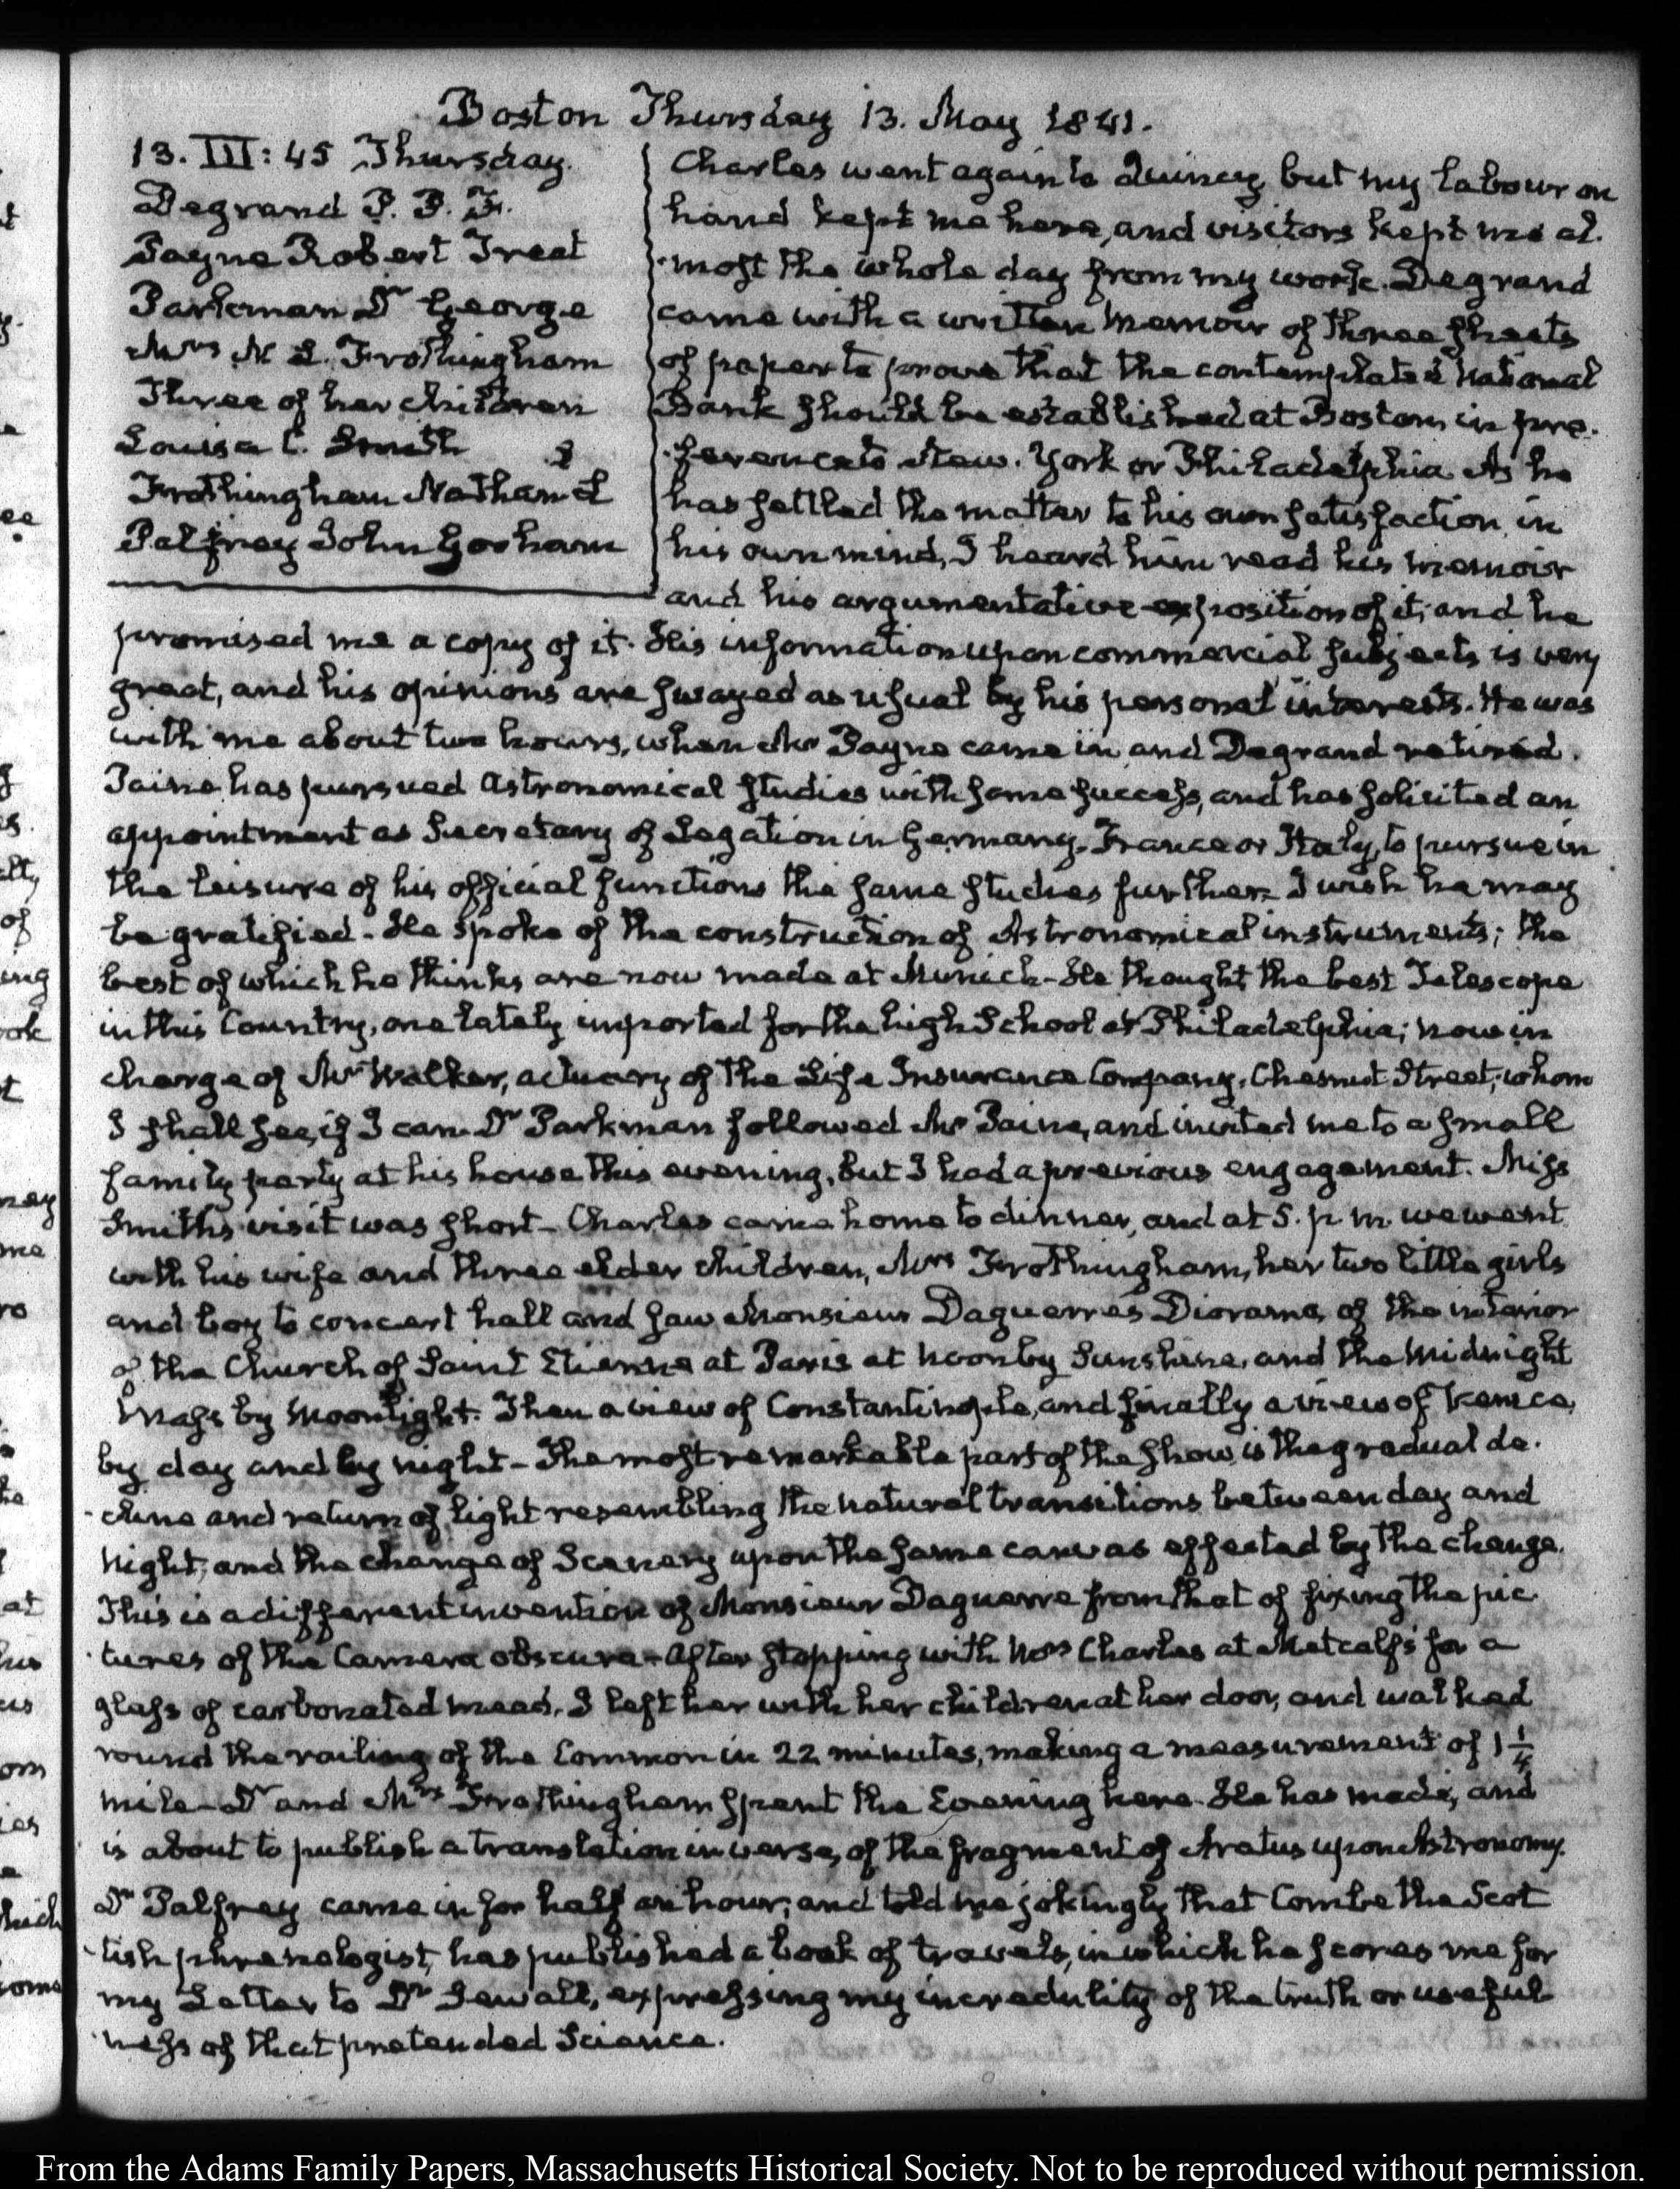 Boston Thursday 13. May 1841.
13. III: 45 Thursday.
Degrand P. P. F.
Payne Robert Treat
Parkman Dr George
Mrs N L. Frothingham
Three of her children
Louisa C. Smith
Frothingham Nathan L
Palfrey John Gorham
Charles went again to Quincy but my labour on
hand kept me here, and visitors kept me al-
-most the whole day from my work. Degrand
came with a written Memoir of three sheets
of paper to prove that the contemplated National
Bank should be established at Boston, in pre-
-ference to New-York or Philadelphia. As he
has settled the matter to his own satisfaction, in
his own mind, I heard him read his memoir
and his argumentative exposition of it; and he
promised me a copy of it. His information upon commercial subjects is very
great, and his opinions are swayed as usual by his personal interests. He was
with me about two hours, when Mr Payne came in, and Degrand retired.
Paine has pursued Astronomical studies with some success, and has solicited an
appointment as Secretary of Legation in Germany, France or Italy, to pursue in
the leisure of his official functions the same studies further. I wish he may
be gratified. He spoke of the construction of Astronomical instruments; the
best of which he thinks are now made at Munich. He thought the best Telescope
in this Country, one lately imported for the high School at Philadelphia; now in
charge of Mr Walker, actuary of the Life Insurance Company, Chesnut Street, whom
I shall see, if I can. Dr Parkman followed Mr Paine, and invited me to a small
family party at his house this evening, but I had a previous engagement. Miss
Smith's visit was short. Charles came home to dinner, and at 5. p. m. we went
with his wife and three elder children, Mrs Frothingham, her two little girls
and boy to concert hall and saw Monsieur Daguerre's Diorama, of the interior
of the Church of Saint Etienne at Paris at noon by Sunshine, and the Midnight
Mass by Moonlight. Then a view of Constantinople, and finally a view of Venice,
by day and by night - The most remarkable part of the show, is the gradual de-
-cline and return of light resembling the natural transitions between day and
night, and the change of Scenery upon the same canvas effected by the change.
This is a different invention of Monsieur Daguerre from that of fixing the pic
-tures of the Camera obscura - After stopping with Mrs Charles at Metcalf's for a
glass of carbonated mead, I left her with her children at her door, and walked
round the railing of the Common in 22 minutes, making a measurement of 1 1/4
mile - Dr and Mrs Frothingham spent the Evening here. He has made, and
is about to publish a translation in verse, of the fragment of Aratus upon Astronomy.
Dr Palfrey came in for half an hour, and told me jokingly that Combe the Scot
-tish phrenologist, has published a book of travels, in which he scores me for
my Letter to Dr Sewall, expressing my incredulity of the truth or useful
-ness of that pretended Science.
From the Adams Family Papers, Massachusetts Historical Society. Not to be reproduced without permission.